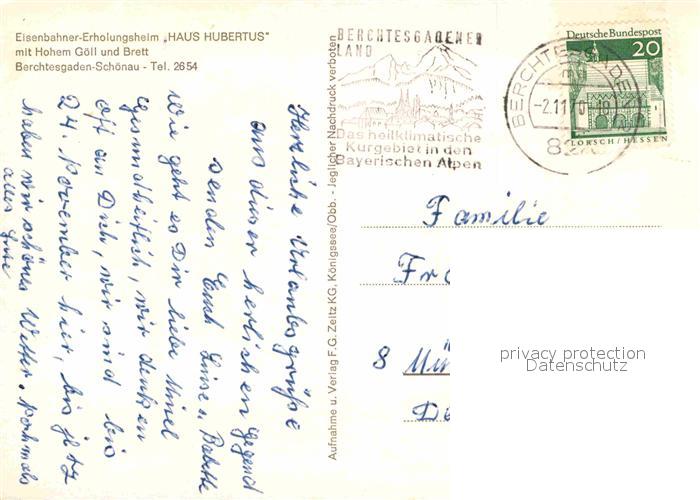 Eisenbahner-Erholungsheim „HAUS HUBERTUS"
mit Hohem Göll und Brett
Berchtesgaden-Schönau - Tel. 2654
BERCHTESGADENER
LAND
Das heilklimatische
Kurgebiet in den
Bayerischen Alpen
BERCHTESGADEN
-2.11.70-18
Deutsche Bundespost
20
LORSCH/HESSEN
Herzliche Urlaubsgrüße
aus dieser herlichen Gegend
senden Euch Luise u. Babette
Wie geht es Dir liebe
Gesundheitlich, wir denken
oft an Dich, wir sind bis
24. November hier, bis jetz
haben wir schönes Wetter. Nochmals
alles Gute
Aufnahme u. Verlag F.G. Zeitz KG, Königssee/Obb. - Jeglicher Nachdruck verboten
Familie
Fr
8 Mün
privacy protection
Datenschutz